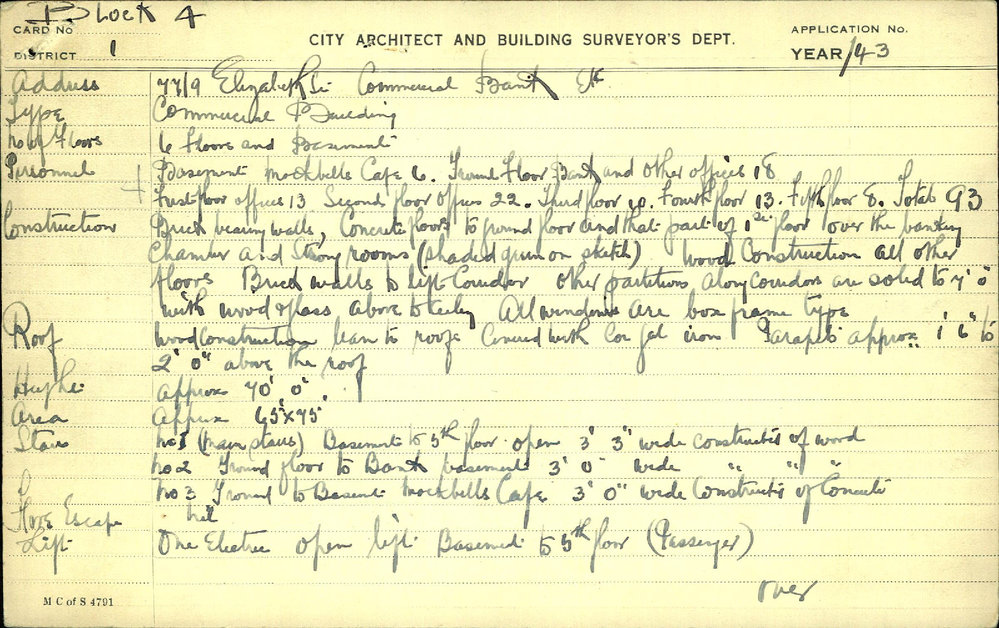 Block 4
CARD No
DISTRICT 1
CITY ARCHITECT AND BUILDING SURVEYOR'S DEPT.
APPLICATION No.
YEAR /43
Address 77/9 Elizabeth St Commercial Bank
Type Commercial Building
No of Floors 6 Floors and Basement
Personnel Basement Mockbells Cafe 6. Ground Floor Bank and other offices 18
+ First floor offices 13 Second floor offices 22. Third floor 10. Fourth floor 13. Fifth floor 8. Total 93
Construction Brick bearing walls, Concrete floors to ground floor and that part of 1st floor over the banking
Chamber and Strong rooms (shaded green on sketch) Wood Construction all other
floors Brick walls to lift Corridor other partitions along corridors are solid to 7' 0"
with wood & glass above to ceiling All windows are box frame type
Roof Wood construction lean to roofs Covered with Cor gal iron Parapets approx 1' 6" to
2' 0" above the roof
Height approx 70' 0"
Area Approx 65' x 75'
Stairs No 1 (main stairs) Basement to 5th floor open 3' 3" wide constructed of wood
No 2 Ground floor to Bank basement 3' 0" wide " " "
No 3 Ground to Basement Mockbells Cafe 3' 0" wide Constructed of Concrete
Fire Escape Nil
Lift One Electric open lift Basement to 5th floor (Passenger)
over
M C of S 4791